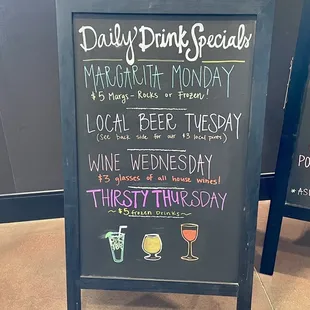 Daily Drink Specials
MARGARITA MONDAY
$5 Margs - Rocks or Frozen!
LOCAL BEER TUESDAY
(See back side for our $3 local pours)
WINE WEDNESDAY
$3 glasses of all house wines!
THIRSTY THURSDAY
~ $5 frozen Drinks ~